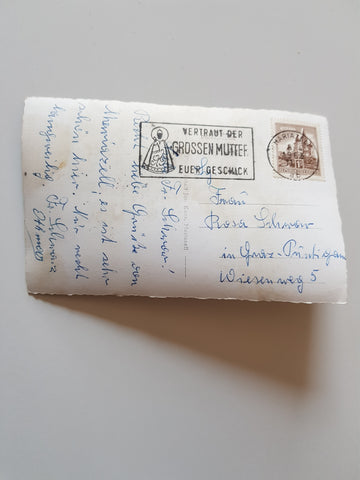 VERTRAUT DER
GROSSEN MUTTER
EUER GESCHICK
MARIAZELL
Frau
Rosa Schwar
in Graz-Puntigam
Wiesenweg 5
Fr. Schwar!
Recht liebe Grüße von
Mariazell, es ist sehr
schön hier. Nur recht
langweilig. Fr. Schwarz